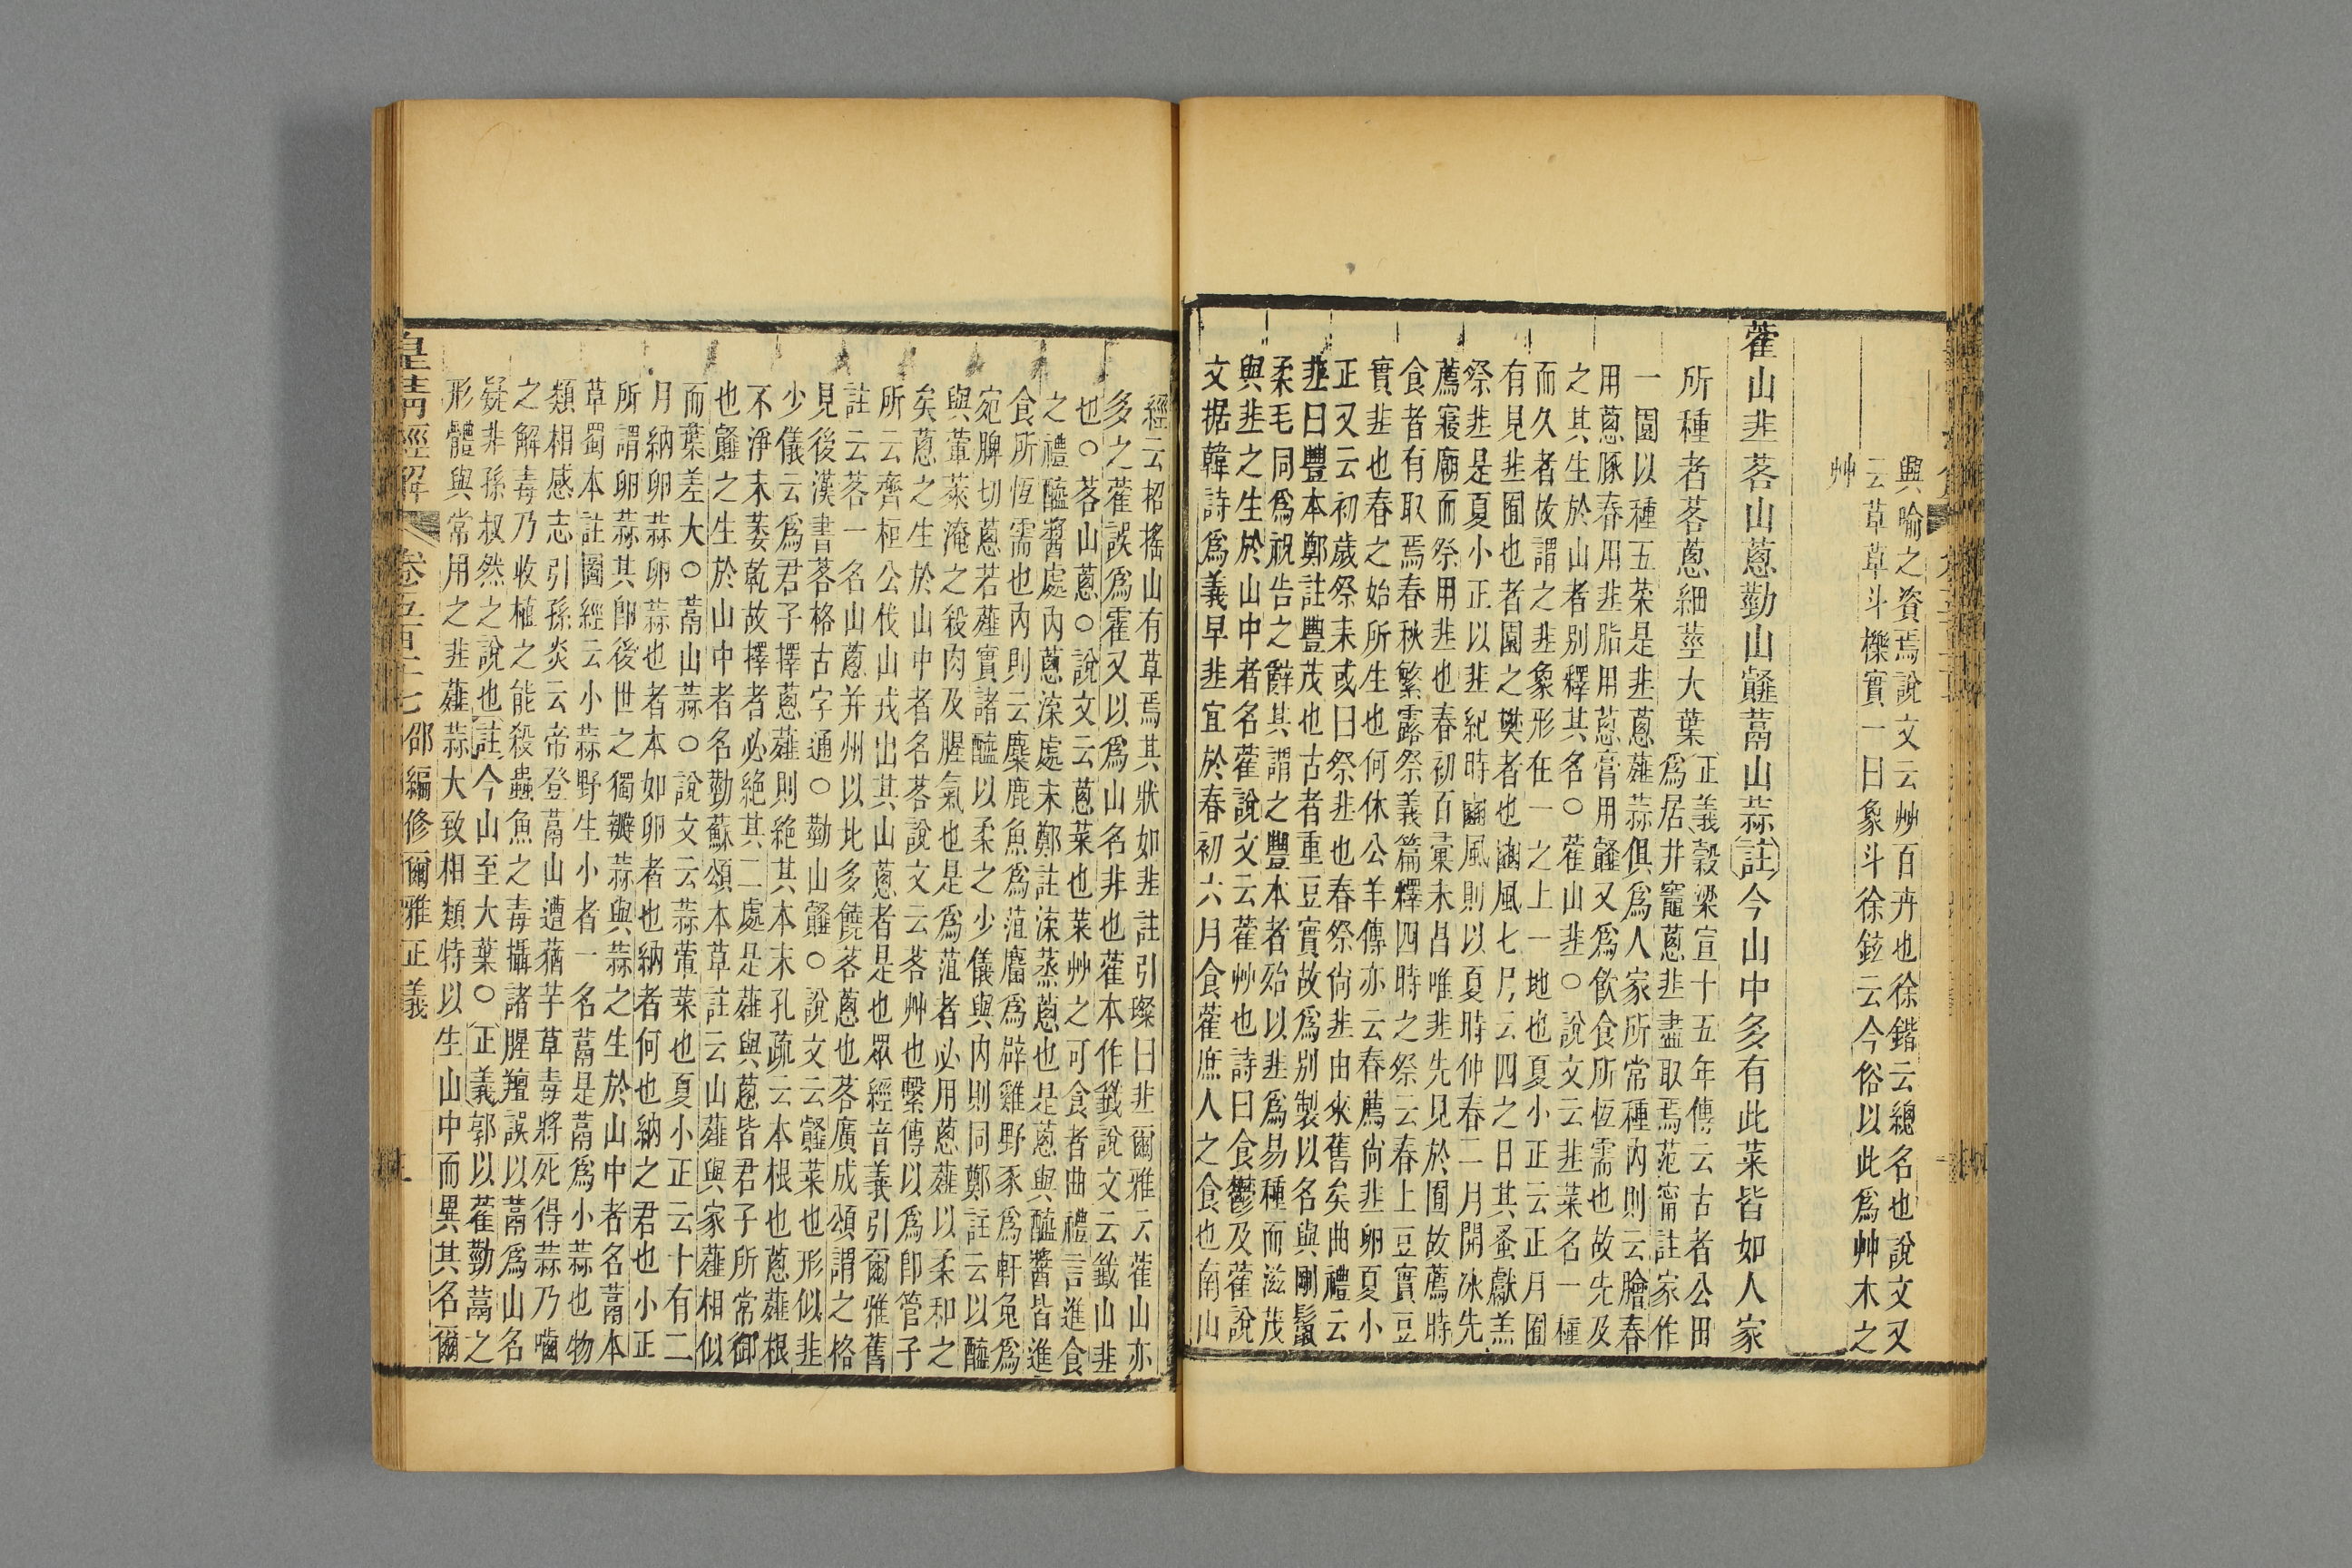 興喻之資焉說文云艸百卉也徐鍇云總名也說文又
云草草斗櫟實一曰象斗徐鉉云今俗以此爲艸木之
艸
藿山韭茖山蔥勤山䪥蒚山蒜註今山中多有此菜皆如人家
所種者茖蔥細莖大葉
正義穀梁宣十五年傳云古者公田
爲居井竈蔥韭盡取焉范甯註家作
一園以種五菜是韭蔥薤蒜俱爲人家所常種內則云膾春
用蔥豚春用韭脂用蔥膏用䪥又爲飮食所恆需也故先及
之其生於山者別釋其名○藿山韭○說文云韭菜名一種
而久者故謂之韭象形在一之上一地也夏小正云正月囿
有見韭囿也者園之燕者也豳風七月云四之日其蚤獻羔
祭韭是夏小正以韭紀時豳風則以夏時仲春二月開冰先
薦寢廟而祭用韭也春初百蔬未昌唯韭先見於囿故薦時
食者有取焉春秋繁露祭義篇釋四時之祭云春上豆實豆
實韭也春之始所生也何休公羊傳亦云春薦尙韭卵夏小
正又云初歲祭耒或曰祭韭也春祭尙韭由來舊矣曲禮云
韭曰豐本鄭註豐茂也古者重豆實故爲別製以名與剛鬣
柔毛同爲祝告之辭其謂之豐本者殆以韭爲易種而滋茂
與韭之生於山中者名藿說文云藿艸也詩曰食鬱及藿說
文据韓詩爲義早韭宜於春初六月食藿庶人之食也南山
經云招搖山有草焉其狀如韭註引璨曰韭爾雅云藿山亦
多之藿誤爲霍又以爲山名非也藿本作䪥說文云䪥山韭
也○茖山蔥○說文云蔥菜也菜艸之可食者曲禮言進食
之禮醯醬處內蔥渫處末鄭註渫蒸蔥也是蔥與醯醬皆進
食所恆需也內則云麋鹿魚爲菹麕爲辟雞野豕爲軒兔爲
宛脾切蔥若薤實諸醯以柔之少儀與內則同鄭註云以醯
與葷菜淹之殺肉及腥氣也是爲菹者必用蔥薤以柔和之
矣蔥之生於山中者名茖說文云茖艸也繫傳以爲卽管子
所云齊桓公伐山戎出其山蔥者是也眾經音義引爾雅舊
註云茖一名山蔥幷州以北多饒茖蔥也茖廣成頌謂之格
見後漢書茖格古字通○勤山䪥○說文云䪥菜也形似韭
少儀云爲君子擇蔥薤則絕其本末孔疏云本根也蔥薤根
不淨末萎乾故擇者必絕其二處是薤與蔥皆君子所常御
也䪥之生於山中者名勤蘇頌本草註云山薤與家薤相似
而葉差大○蒚山蒜○說文云蒜葷菜也夏小正云十有二
月納卵蒜卵蒜也者本如卵者也納者何也納之君也小正
所謂卵蒜其卽後世之獨瓣蒜與蒜之生於山中者名蒚本
草蜀本註圖經云小蒜野生小者一名蒚是蒚爲小蒜也物
類相感志引孫炎云帝登蒚山遭蕕芋草毒將死得蒜乃囓
之解毒乃收植之能殺蟲魚之毒攝諸腥羶誤以蒚爲山名
疑非孫叔然之說也註今山至大葉○正義郭以藿勤蒚之
形體與常用之韭薤蒜大致相類特以生山中而異其名爾
皇淸經解 卷五百十七 邵編修爾雅正義 五